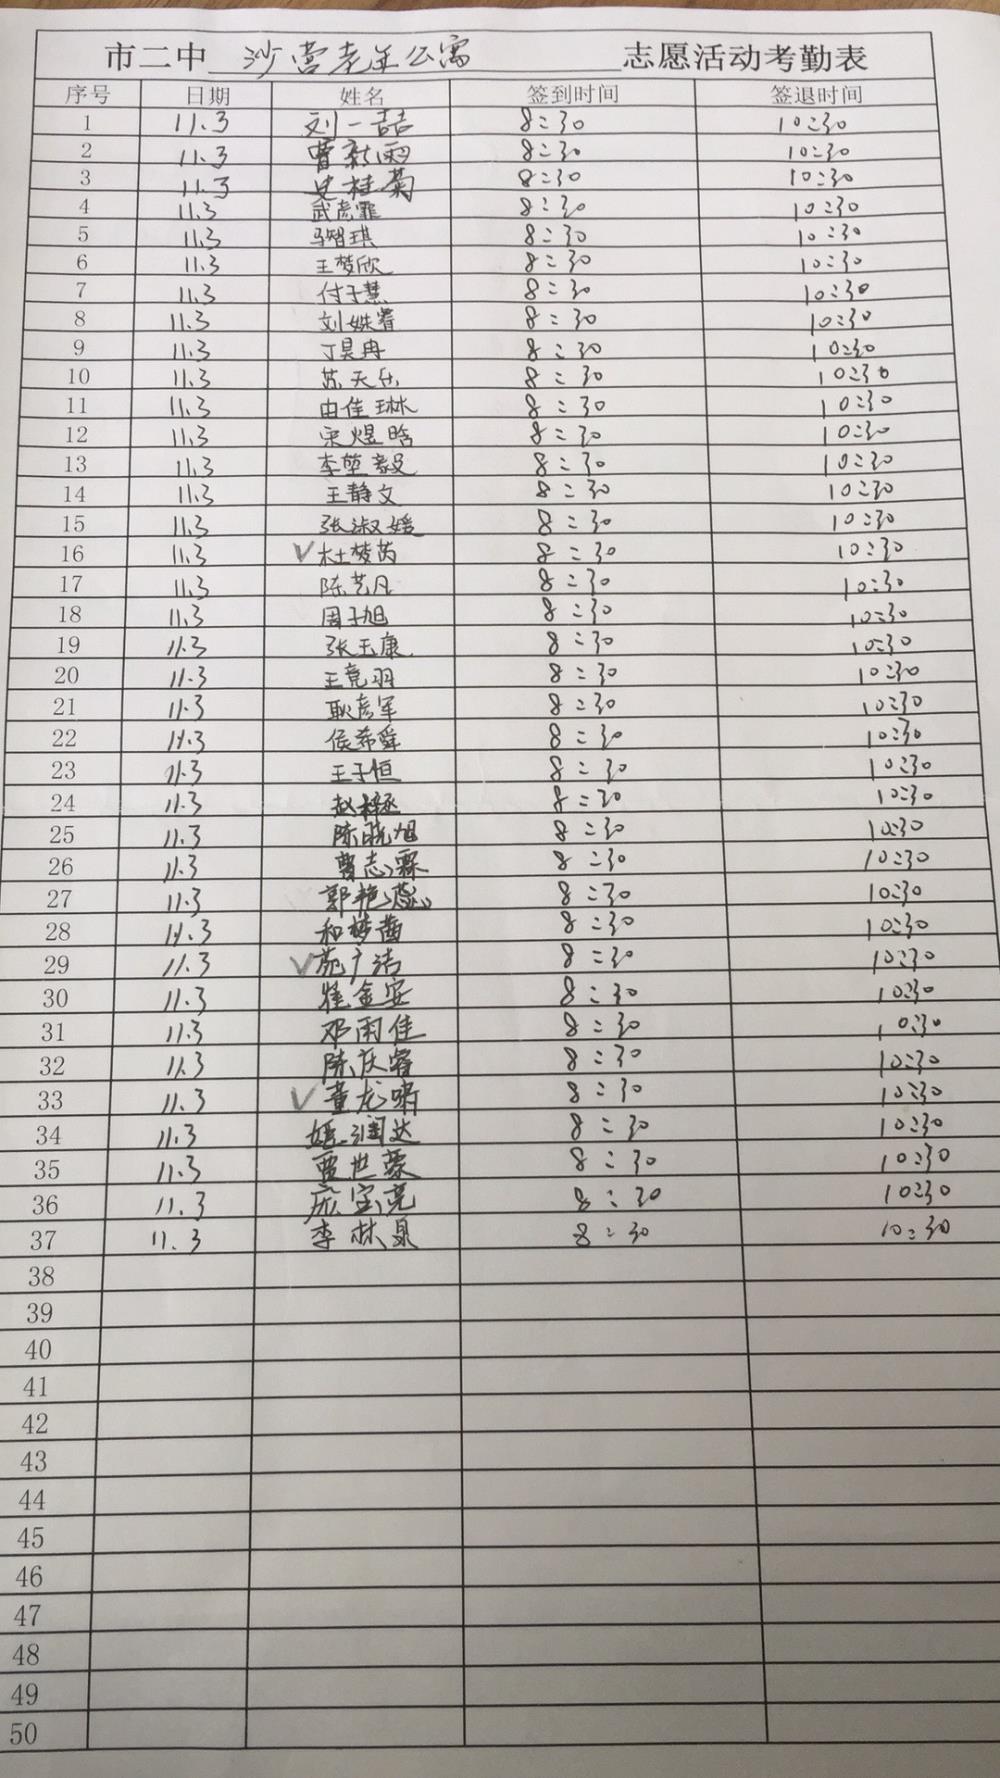 市二中 沙营老年公寓 志愿活动考勤表
序号 日期 姓名 签到时间 签退时间
1 11.3 刘一喆 8:30 10:30
2 11.3 曹新雨 8:30 10:30
3 11.3 史桂菊 8:30 10:30
4 11.3 武彦霏 8:30 10:30
5 11.3 马智琪 8:30 10:30
6 11.3 王梦欣 8:30 10:30
7 11.3 付子慧 8:30 10:30
8 11.3 刘姝睿 8:30 10:30
9 11.3 丁昊冉 8:30 10:30
10 11.3 苏天乐 8:30 10:30
11 11.3 由佳琳 8:30 10:30
12 11.3 宋煜晗 8:30 10:30
13 11.3 李堃毅 8:30 10:30
14 11.3 王静文 8:30 10:30
15 11.3 张淑媛 8:30 10:30
16 11.3 √杜梦芮 8:30 10:30
17 11.3 陈艺凡 8:30 10:30
18 11.3 周子旭 8:30 10:30
19 11.3 张玉康 8:30 10:30
20 11.3 王竞羽 8:30 10:30
21 11.3 耿彦军 8:30 10:30
22 11.3 侯希舜 8:30 10:30
23 11.3 王子恒 8:30 10:30
24 11.3 赵梓丞 8:30 10:30
25 11.3 陈晓旭 8:30 10:30
26 11.3 曹志霖 8:30 10:30
27 11.3 郭艳蕊 8:30 10:30
28 11.3 和梦茜 8:30 10:30
29 11.3 √苑广洁 8:30 10:30
30 11.3 金安 8:30 10:30
31 11.3 邓雨佳 8:30 10:30
32 11.3 陈庆睿 8:30 10:30
33 11.3 √董龙啸 8:30 10:30
34 11.3 姬润达 8:30 10:30
35 11.3 贾世豪 8:30 10:30
36 11.3 宝亮 8:30 10:30
37 11.3 李林泉 8:30 10:30
38
39
40
41
42
43
44
45
46
47
48
49
50